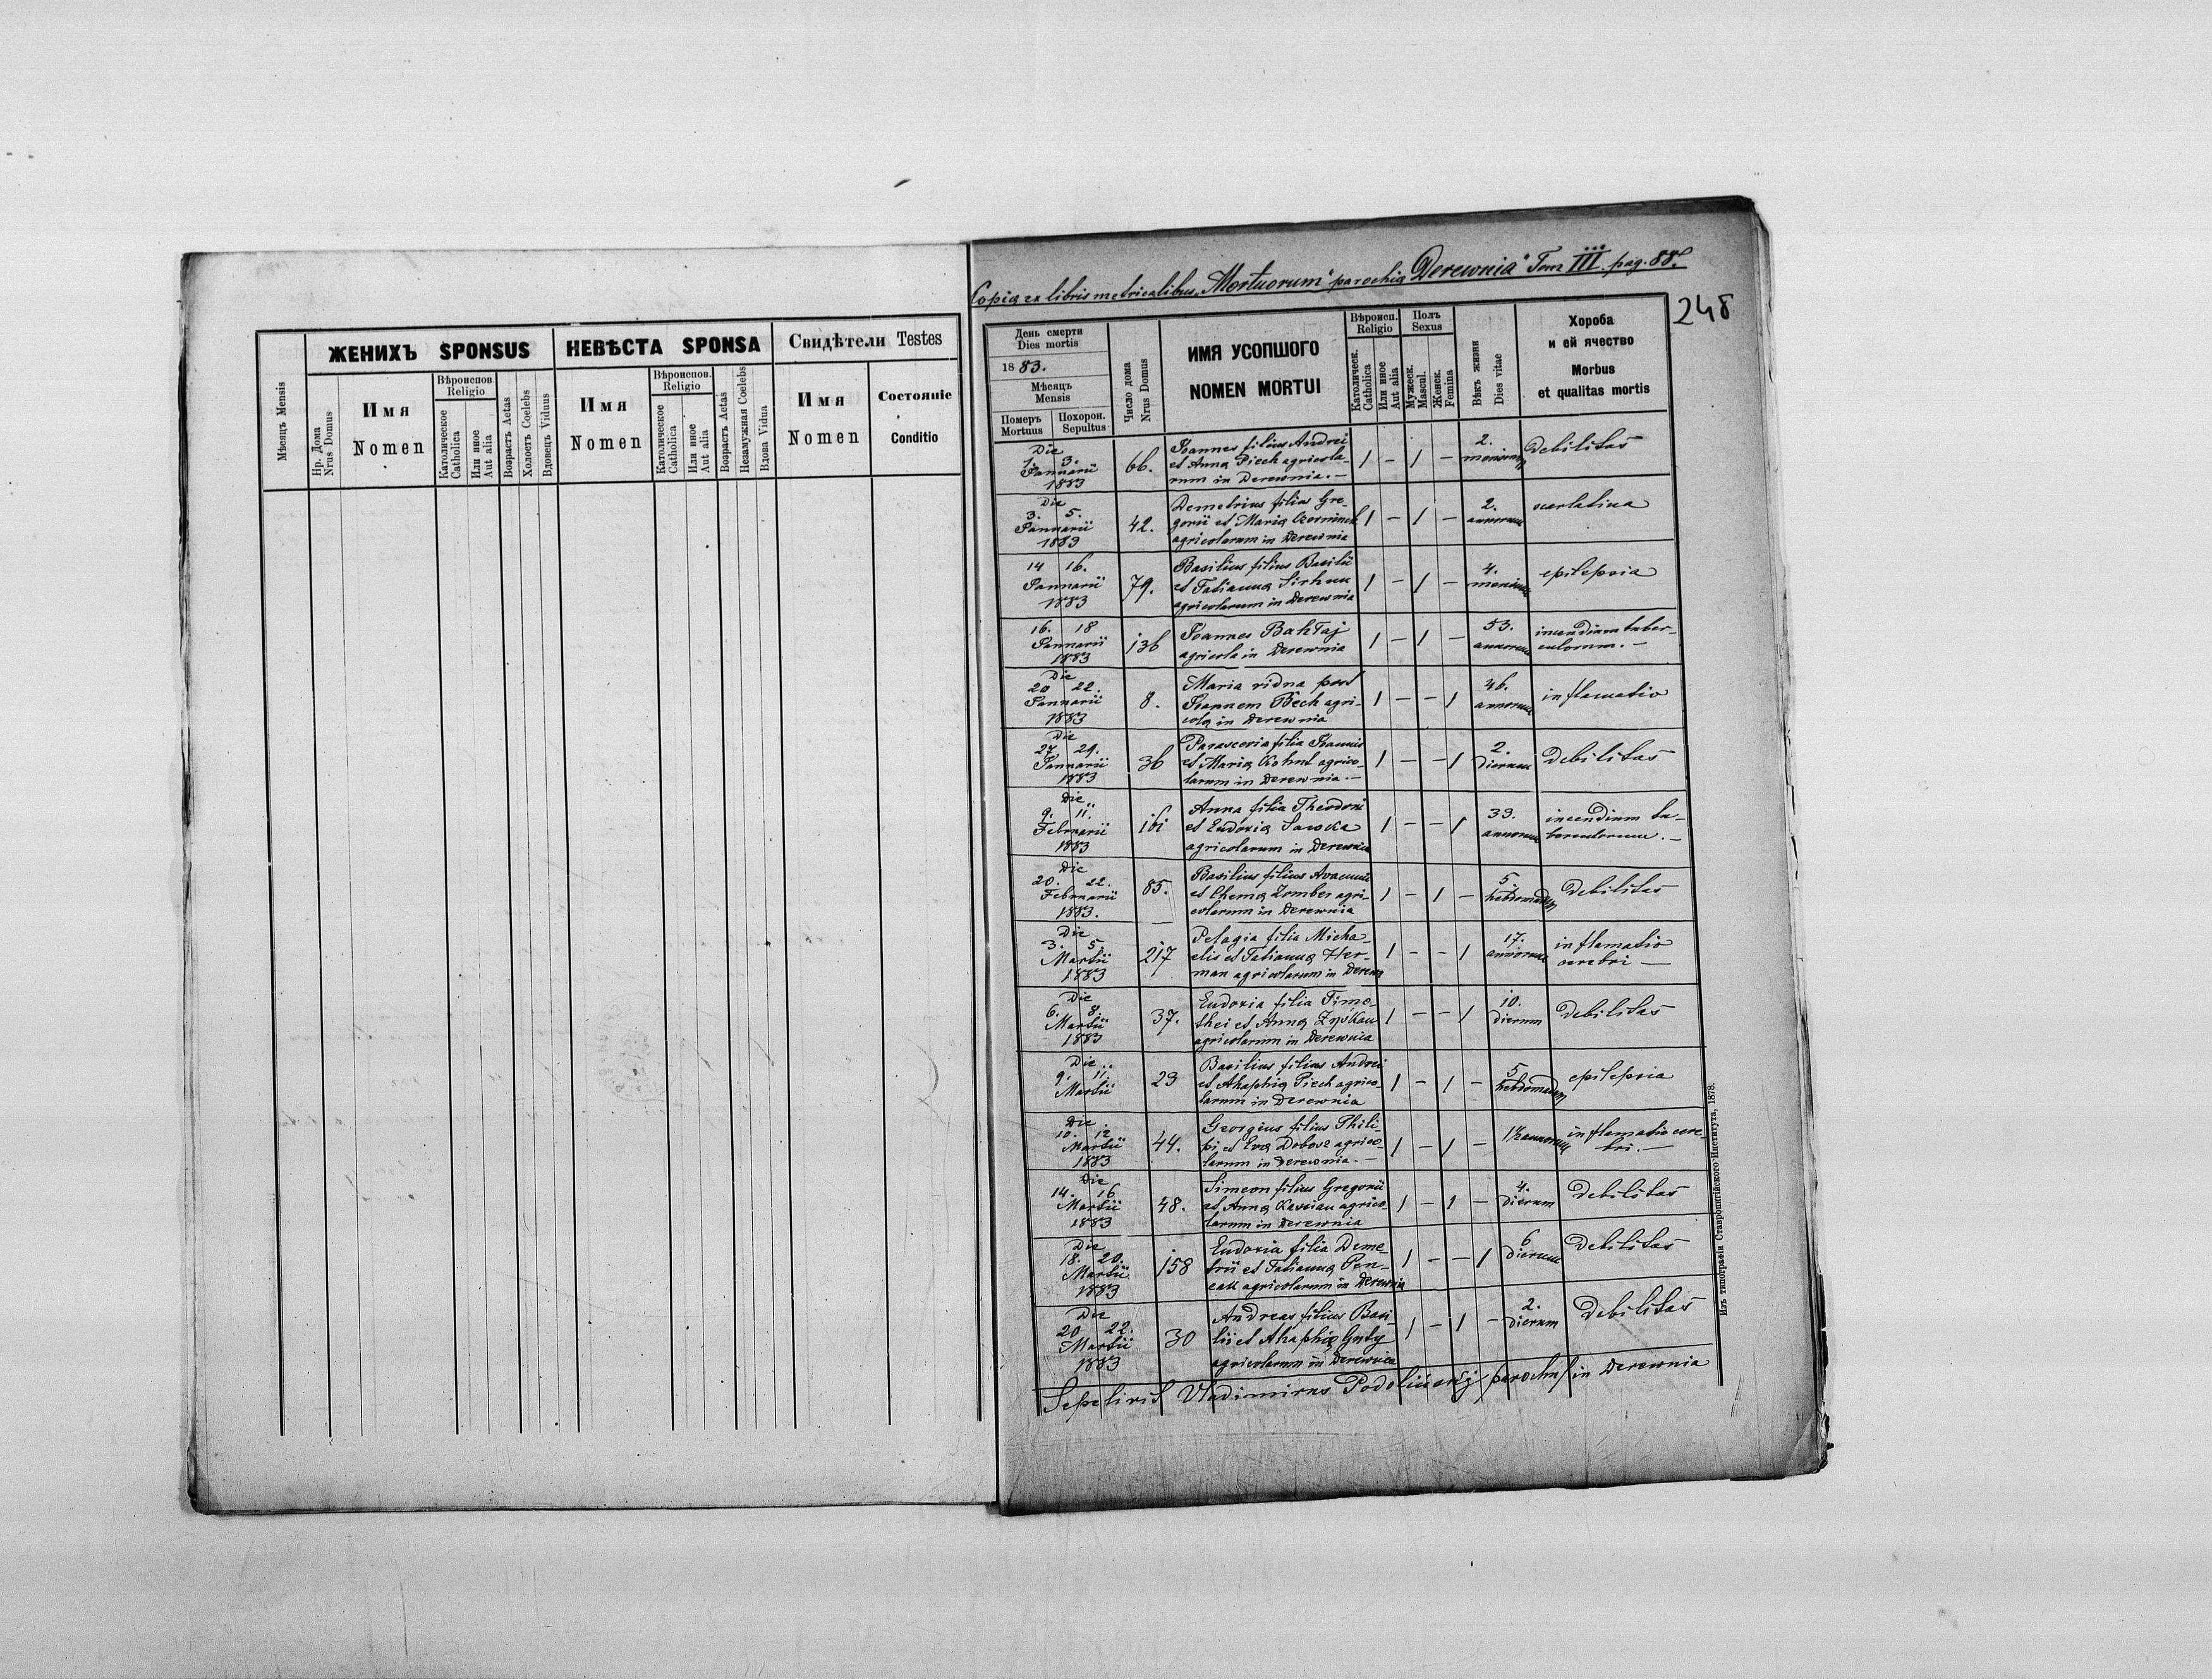 Мѣсяцъ Mensis
ЖЕНИХЪ SPONSUS
НЕВѢСТА SPONSA
Свидѣтели Testes
Нр. Дома
Nrus Domus
Имя
Nomen
Вѣроиспов.
Religio
Католическое
Catholica
Или иное
Aut alia
Возрасть Aetas
Холость Coelebs
Вдовець Viduus
Имя
Nomen
Вѣроиспов.
Religio
Католическое
Catholica
Или иное
Aut alia
Возрасть Aetas
Незамужная Coelebs
Вдова Vidua
Имя
Nomen
Состояніе
Conditio
Copia ex libris metricalibus „Mortuorum" parochia „Derewnia" Tom III. pag. 88.
248
День смерти
Dies mortis
1883.
Мѣсяцъ
Mensis
Померъ
Mortuus
Похорон.
Sepultus
Число дома
Nrus Domus
ИМЯ УСОПШОГО
NOMEN MORTUI
Вѣроисп.
Religio
Католическ.
Catholica
Или иное
Aut alia
Полъ
Sexus
Мужеск.
Mascul.
Женск.
Femina
Вѣкъ жизни
Dies vitae
Хороба
и ей ячество
Morbus
et qualitas mortis
Die
1. 3.
Januarii
1883
66.
Joannes filius Andrei
et Anna Piech agricola-
rum in Derewnia. —
1 — 1 —
2.
mensium
Debilitas
Die
3. 5.
Januarii
1883
42.
Demetrius filius Gre-
gorii et Maria
agricolarum in Derewnia
1 — 1 —
2.
annorum
scarlatina
14 16.
Januarii
1883
79.
Basilius filius Basilii
et Tatianna
agricolarum in Derewnia
1 — 1 —
4.
mensium
epilepsia
16. 18
Januarii
1883
136
Joannes Bahtaj
agricola in Derewnia
1 — 1 —
53.
annorum
incendium tuber-
culorum. —
Die
20 22.
Januarii
1883
8.
Maria vidua post
Joannem Piech agri-
cola in Derewnia
1 — — 1
46.
annorum
inflamatio
Die
27. 29.
Januarii
1883
36
Parascevia filia Joannis
et Maria Kohut agrico-
larum in Derewnia. —
1 — — 1
2.
dierum
Debilitas
Die
9. 11.
Februarii
1883
161
Anna filia Theodori
et Eudoxia Sawka
agricolarum in Derewnia
1 — — 1
33.
annorum
incendium tu-
berculorum. —
Die
20. 22.
Februarii
1883.
85.
Basilius filius
et Chema Zomber agri-
colarum in Derewnia
1 — 1 —
5.
hebdomadum
Debilitas
Die
3. 5.
Martii
1883
217
Pelagia filia Micha-
elis et Tatianna Her-
man agricolarum in Derewn
1 — — 1
17.
annorum
inflamatio
cerebri —
Die
6. 8.
Martii
1883
37.
Eudoxia filia Timo-
thei et Anna
agricolarum in Derewnia
1 — — 1
10.
dierum
Debilitas
Die
9. 11.
Martii
23
Basilius filius Andrei
et Ahaphia Piech agrico-
larum in Derewnia
1 — 1 —
5.
hebdomadum
epilepsia
Die
10. 12
Martii
1883
44.
Georgius filius Phili-
pi et Eva Dobosz agrico-
larum in Derewnia. —
1 — 1 —
1½ annorum
inflamatio cere-
bri. —
Die
14. 16
Martii
1883
48.
Simeon filius Gregorii
et Anna agrico-
larum in Derewnia
1 — 1 —
4.
dierum
Debilitas
Die
18. 20.
Martii
1883
158
Eudoxia filia Deme-
trii et Tatianna Pen-
cak agricolarum in Derewnia
1 — — 1
6
dierum
Debilitas
Die
20 22.
Martii
1883
30
Andreas filius Basi-
lii et Ahaphia Guty
agricolarum in Derewnia
1 — 1 —
2.
dierum
Debilitas
Sepelivit Vladimirus parochus in Derewnia
Изъ типографіи Ставропигійского Института, 1878.